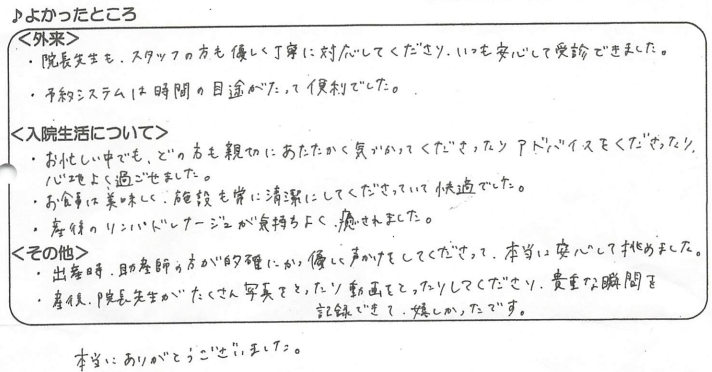 ♪よかったところ
<外来>
・院長先生も、スタッフの方も優しく丁寧に対応してくださり、いつも安心して受診できました。
・予約システムは時間の目途がたって便利でした。
<入院生活について>
・お忙しい中でも、どの方も親切にあたたかく気づかってくださったりアドバイスをくださったり、
心地よく過ごせました。
・お食事は美味しく、施設も常に清潔にしてくださっていて快適でした。
・産後のリンパドレナージュが気持ちよく、癒されました。
<その他>
・出産時、助産師の方が的確にかつ優しく声かけをしてくださって、本当に安心して挑めました。
・産後、院長先生がたくさん写真をとったり動画をとったりしてくださり、貴重な瞬間を
記録できて、嬉しかったです。
本当にありがとうございました。